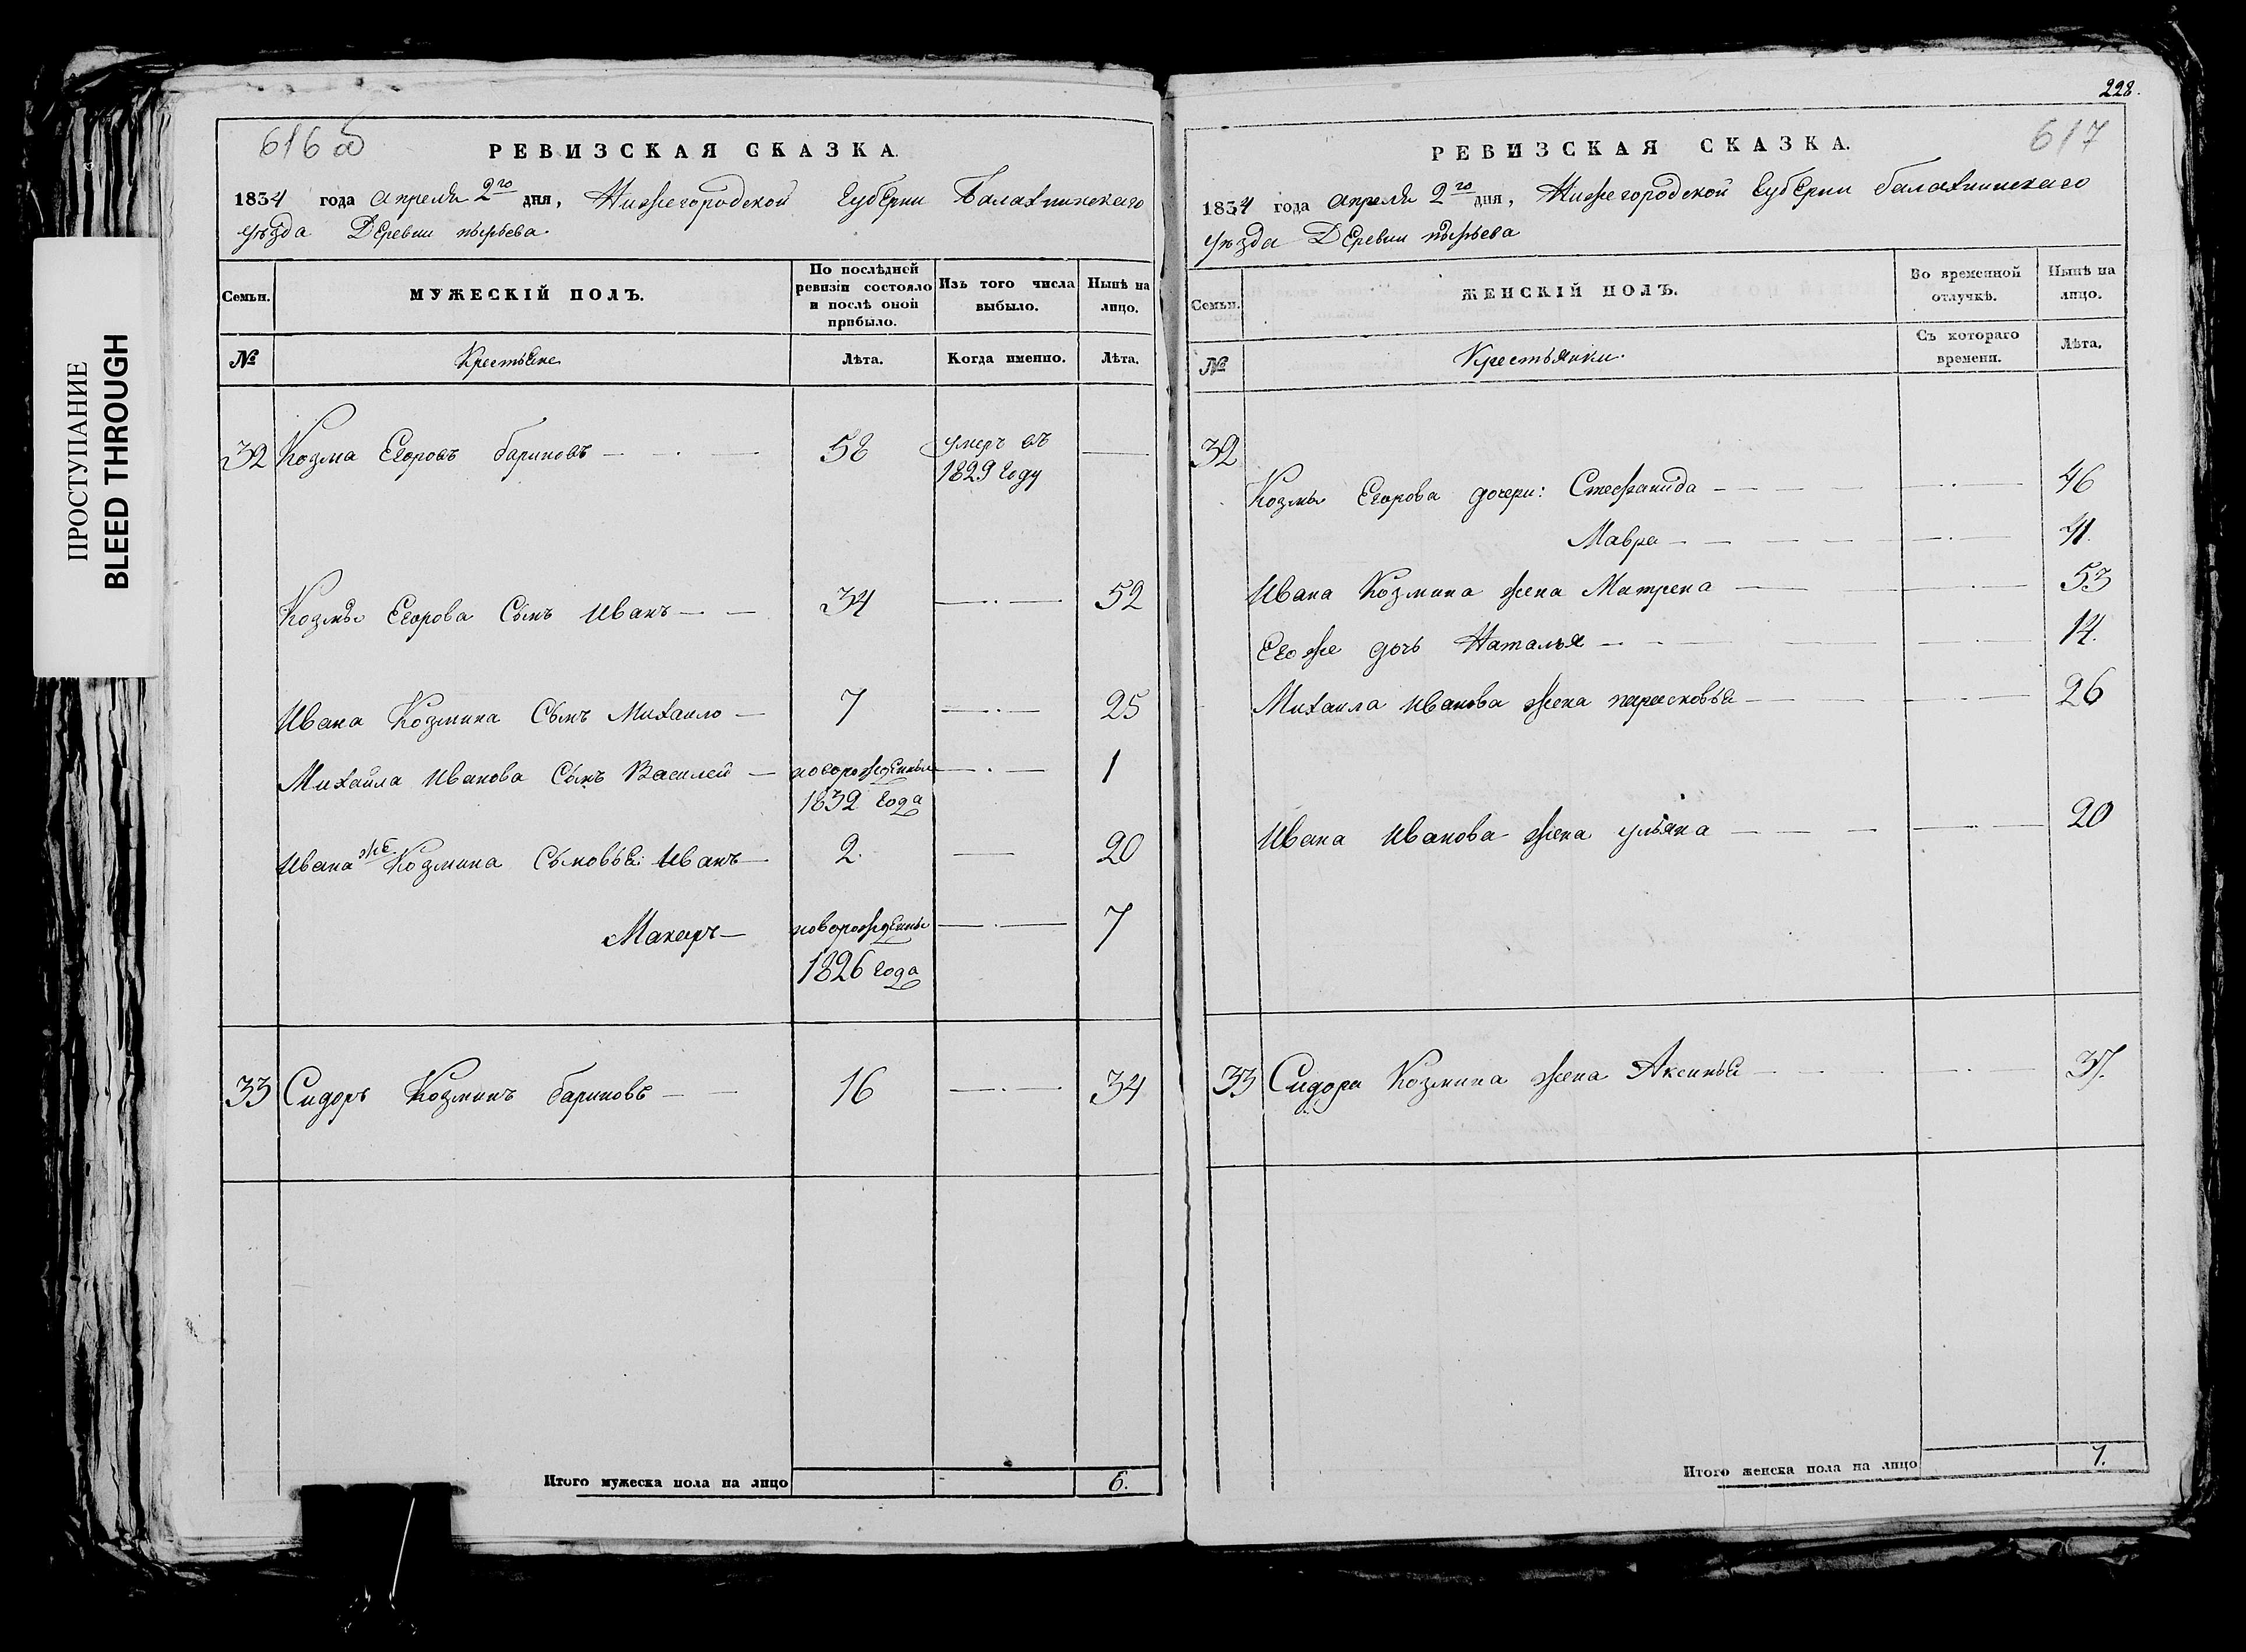 ПРОСТУПАНИЕ
BLEED THROUGH
616 об
РЕВИЗСКАЯ СКАЗКА.
1834 года апреля 2го дня, Нижегородской Губернии Балахнинскаго
уѣзда Деревни пырьева
Семьи.
МУЖЕСКІЙ ПОЛЪ.
По послѣдней ревизіи состояло и послѣ оной прибыло.
Изъ того числа выбыло.
Нынѣ на лицо.
№
Крестьяне
Лѣта.
Когда именно.
Лѣта.
32 Козма Егоровъ бариновъ — 58 умеръ въ —
1829 году
Козмы Егорова Сынъ Иванъ — 34 — 52
Ивана Козмина Сынъ Михаило — 7 — 25
Михаила Иванова Сынъ Василей — новорожденный — 1
1832 года
Ивана же Козмина Сыновья: Иванъ — 2. — 20
Макаръ — новорожденны — 7
1826 года
33 Сидоръ Козминъ бариновъ — 16 — 34
Итого мужеска пола на лицо 6.
228.
617
РЕВИЗСКАЯ СКАЗКА.
1834 года апреля 2го дня, Нижегородской Губернии балахнинскаго
уѣзда Деревни пырьева
Семьи.
ЖЕНСКІЙ ПОЛЪ.
Во временной отлучкѣ.
Нынѣ на лицо.
№
Крестьянки.
Съ котораго времени.
Лѣта.
32
Козмы Егорова дочери: Стефанида — — 46
Мавра — — 41.
Ивана Козмина жена Матрена — — 53
Его же дочь Наталья — — 14.
Михаила Иванова жена парасковья — — 26
Ивана Иванова жена ульяна — — 20
33 Сидора Козмина жена Аксинья — — 37.
Итого женска пола на лицо 7.